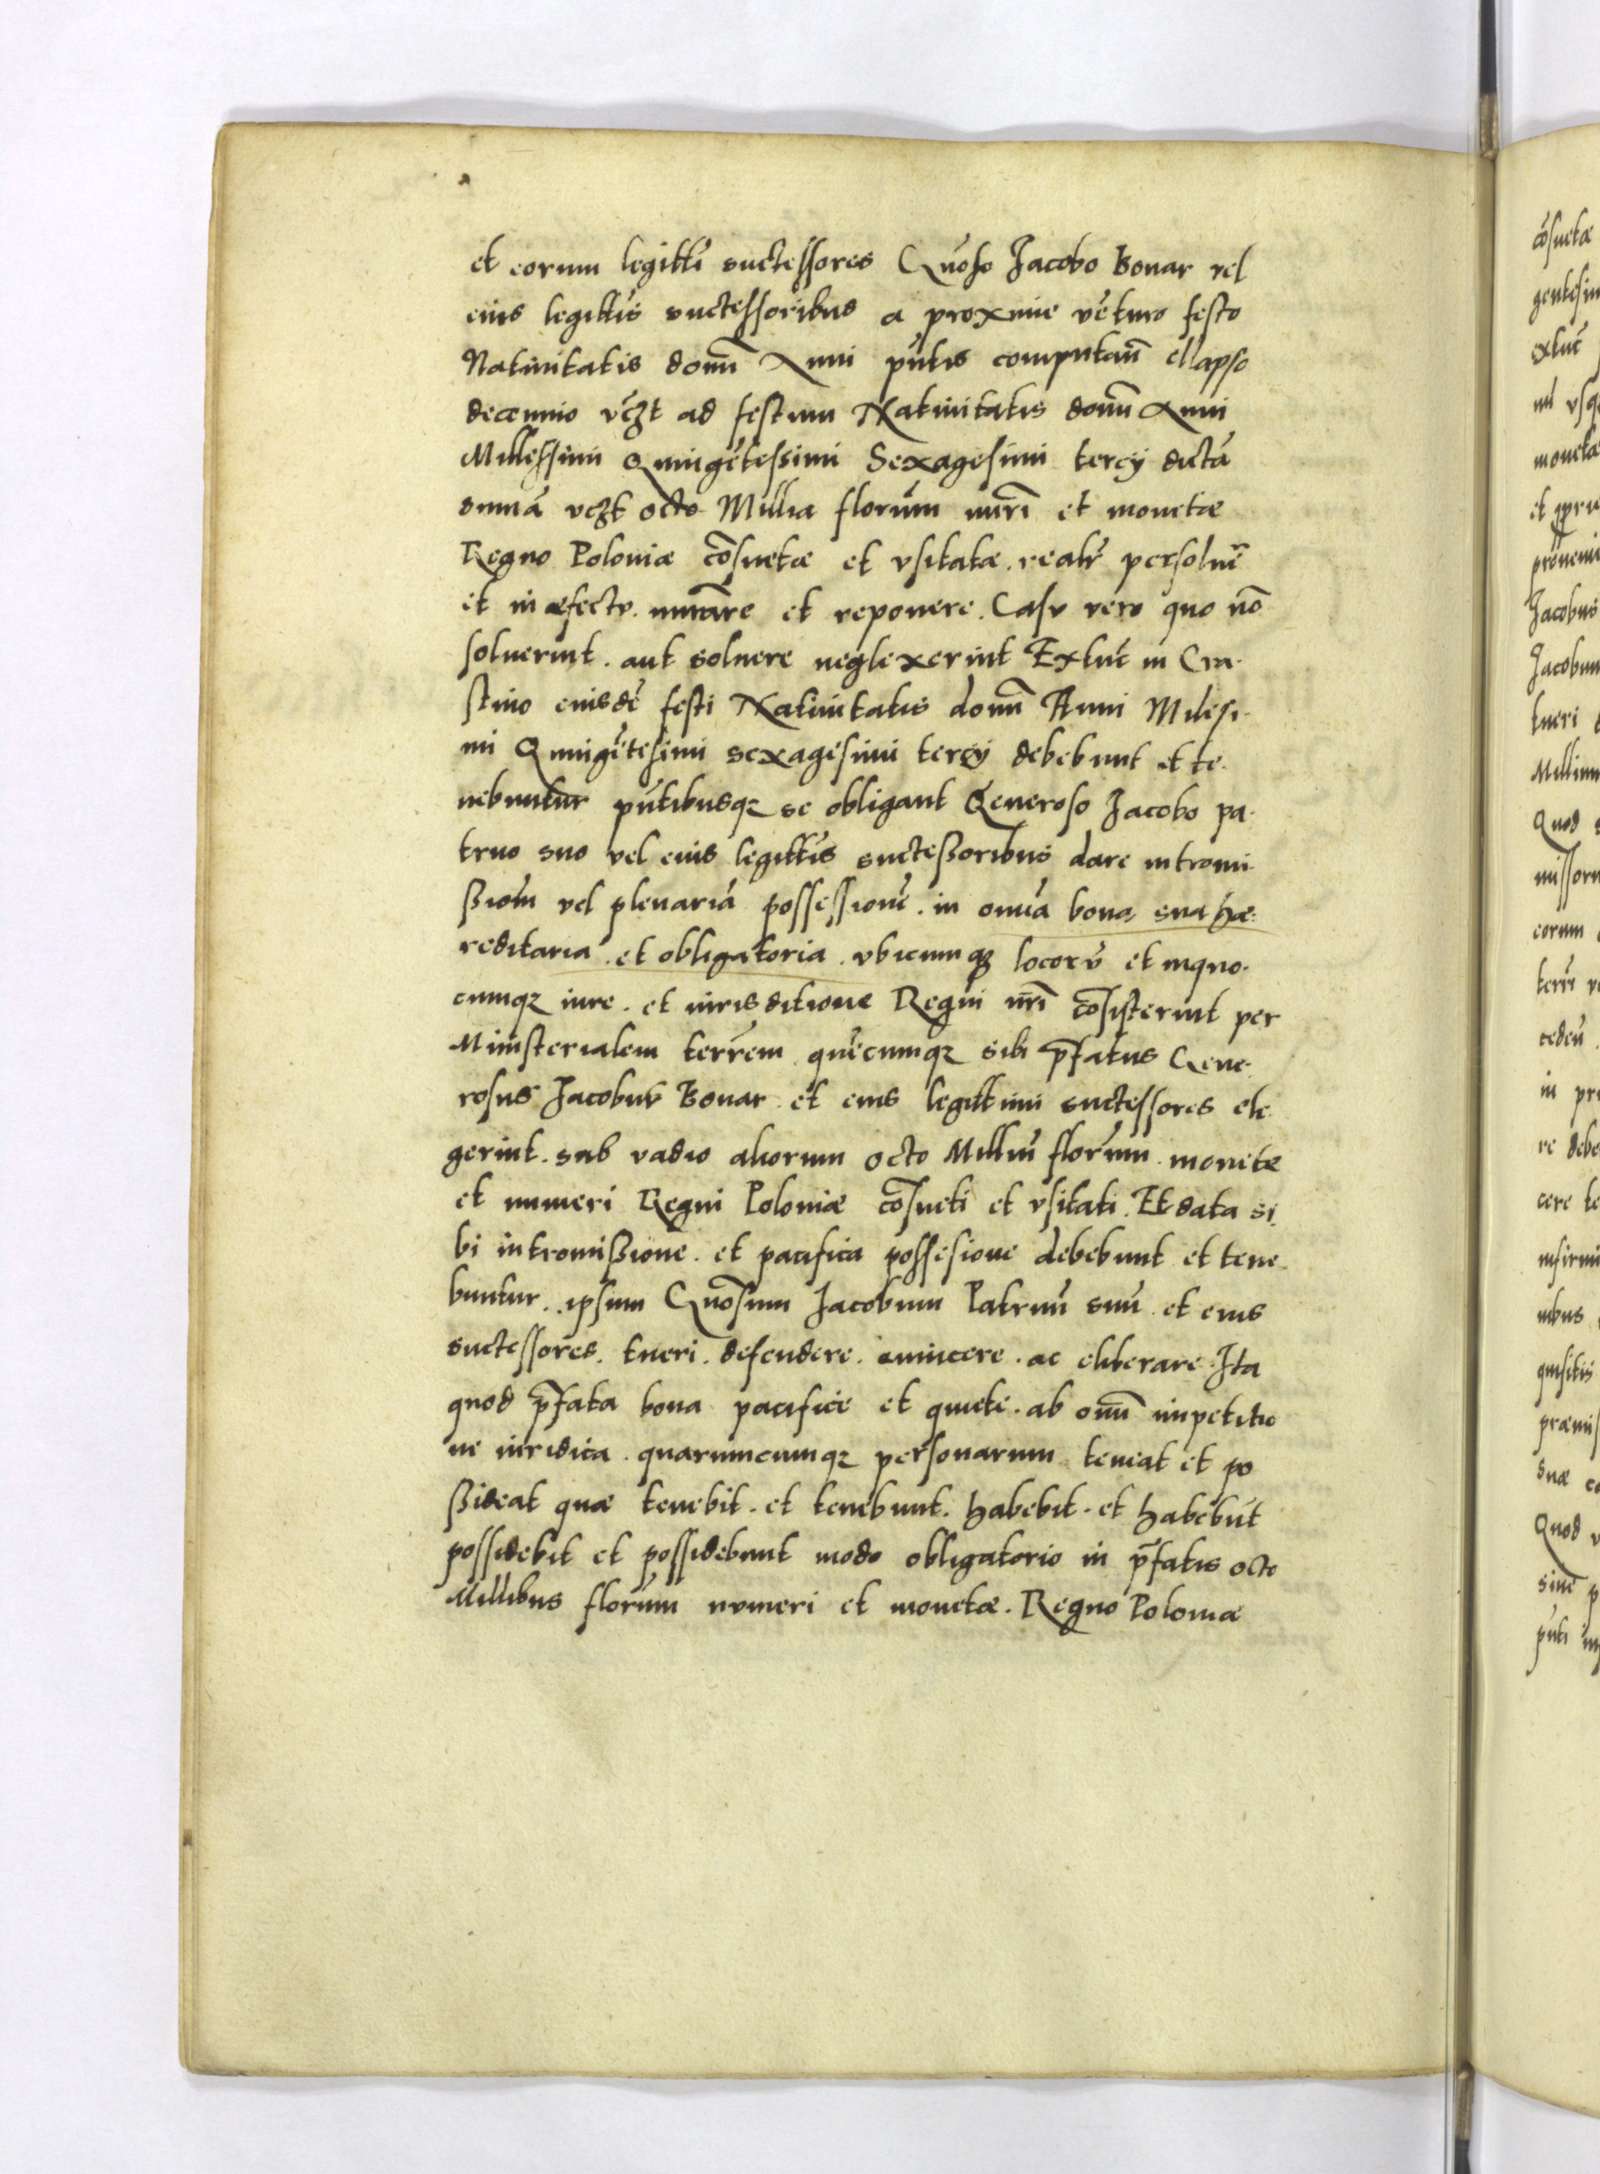 et eorum legitti͂ suctessores Gn͂oso Jacobo Bonar vel
eius legittis͂ suctessoribus a proxime ve͂turo festo
Natiuitatis dom͂ Anni pn͂tis computan͂ ellapso
decennio vcz͂t ad festum Natiuitatis dom͂ Anni
Millessimi Quinge͂tessimi Sexagesimi tercÿ dicta͂
suma͂ vcz͂t octo Millia floru͂m nu͂ri et monetæ
Regno Poloniæ co͂suetæ et vsitatæ . realr͂ persoluer͂
et in æfectv . nu͂rare et reponere . Casv vero quo no͂
soluerint . aut soluere neglexerint Extu͂c in Cra-
stino eiusde͂ festi Natiuitatis dom͂ Anni Milesi-
mi Quinge͂tesimi sexagesimi tercÿ debebunt et te-
nebuntur pn͂tibusqȝ se obligant Generoso Jacobo pa-
truo suo vel eius legittis͂ suctessoribus dare intromi-
ßiom͂ vel plenaria͂ possessione͂ . in omia͂ bona sua hæ-
reditaria . et obligatoria . vbicumqȝ locoru͂ et in quo-
cumqȝ iure . et iurisditione Regni nr͂i co͂sisterint per
Ministerialem terr͂em que͂cumqȝ sibi p͂fatus Gene-
rosus Jacobus Bonar et eius legittimi suctessores ele-
gerint . sub vadio aliorum octo Milliu͂ floru͂m . monetæ
et numeri Regni Poloniæ co͂sueti et vsitati . Et data si-
bi intromißione . et pacifica possesione debebunt et tene-
buntur . ipsum Gn͂osum Jacobum Patruu͂ suu͂ et eius
suctessores . tueri . defendere . euincere . ac eliberare . Ita
quod p͂fata bona pacifice et quiete . ab om͂i impetitio
ne iuridica . quarumcumqȝ personarum teneat et po
ßideat quæ tenebit . et tenebunt . habebit . et habebu͂t
possidebit et possidebunt modo obligatorio in p͂fatis octo
Millibus floru͂m nvmeri et monetæ . Regno Poloniæ